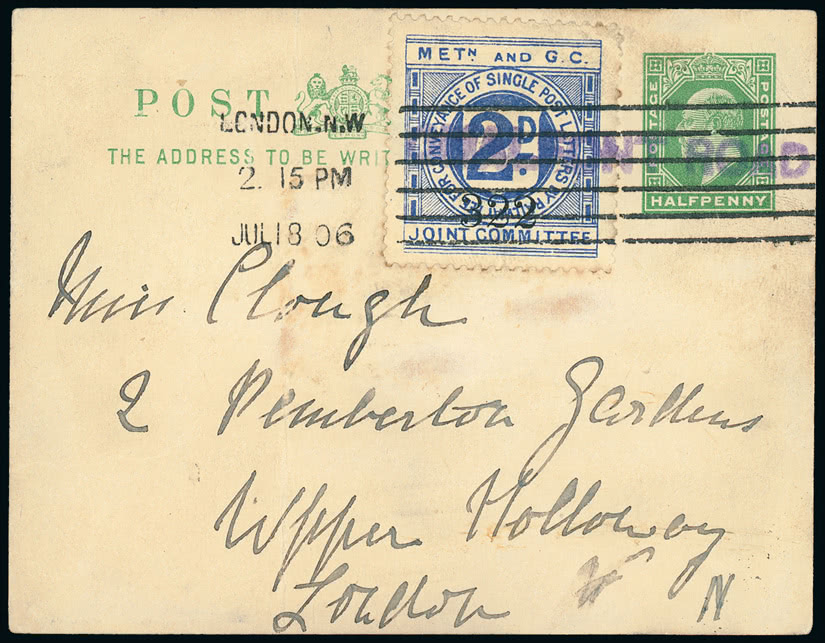 POST
LONDON.N.W
THE ADDRESS TO BE WRIT
2. 15 PM
JUL 18 06
METN AND G.C.
FOR CONVEYANCE OF SINGLE POST LETTERS BY
2D.
322
JOINT COMMITTEE
ROAD
POSTAGE
POSTAGE
HALFPENNY
Miss Clough
2 Pemberton Gardens
Upper Holloway
London N